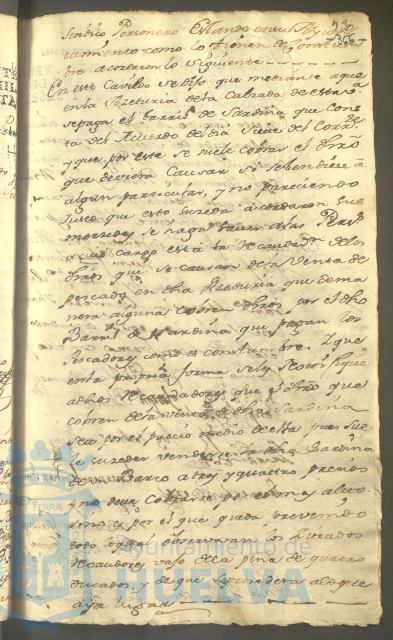 230
366
Sindico Personero Estando en su Ayun
tamiento como lo tienen de Constum
bre acordaron lo siguiente
En este Cavildo se dijo que mediante aque
en la Azeduria de la Calzada de esta V.ª
se paga el barril de Sardina que Cons
ta del Acuerdo del dia Siete del Corr.te
y que por este se suele cobrar el dro
que deviera Causar si se bendiese a
algun particular, y no pareciendo
justo que esto suzeda acordaron sus
mercedes se haga saver a las Pers.s
a cuio cargo está la Recaudaz.n de los
dros que se causan de la Venta de
pescado en dha Azeduria que de ma
nera alguna cobren dros por el dho
Barril de Sardina que pagan los
Pescadores como es constumbre. Y que
en la propria forma se les Notifique
a dhos Recaudadores que el dro que
cobren de la venta de dha Sardina
sea por el precio medio de ella pues sue
le suzeder venderse la dha Sardina
de un Barco a tres y quattro precios
y no deve Cobrarse por el mas alto
sino por el que queda prevenido
todo lo qual observaran los Zitados
Recaudores vajo de la pena de quatro
ducados y de que se prozedera a lo que
aya lugar
TERRA
Ayuntamiento de
HUELVA